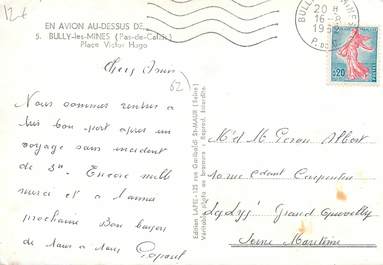 12€
EN AVION AU-DESSUS DE...
5. BULLY-les-MINES (Pas-de-Calais)
Place Victor Hugo
BULLY
MINES
20 H
16-8
1962
P. DE C.
0,20
62
Nous sommes rentrés à
très bon port après un
voyage sans incident
de 3h Encore mille
merci et à l'année
prochaine Bon baisers
de tous à tous
Edition LAPIE - 125 rue Garibaldi St-MAUR (Seine)
Véritable photo au bromure - Reprod. interdite
Mr et Mme Albert
10 rue Cdant Carpentier
Grand Quevilly
Seine Maritime